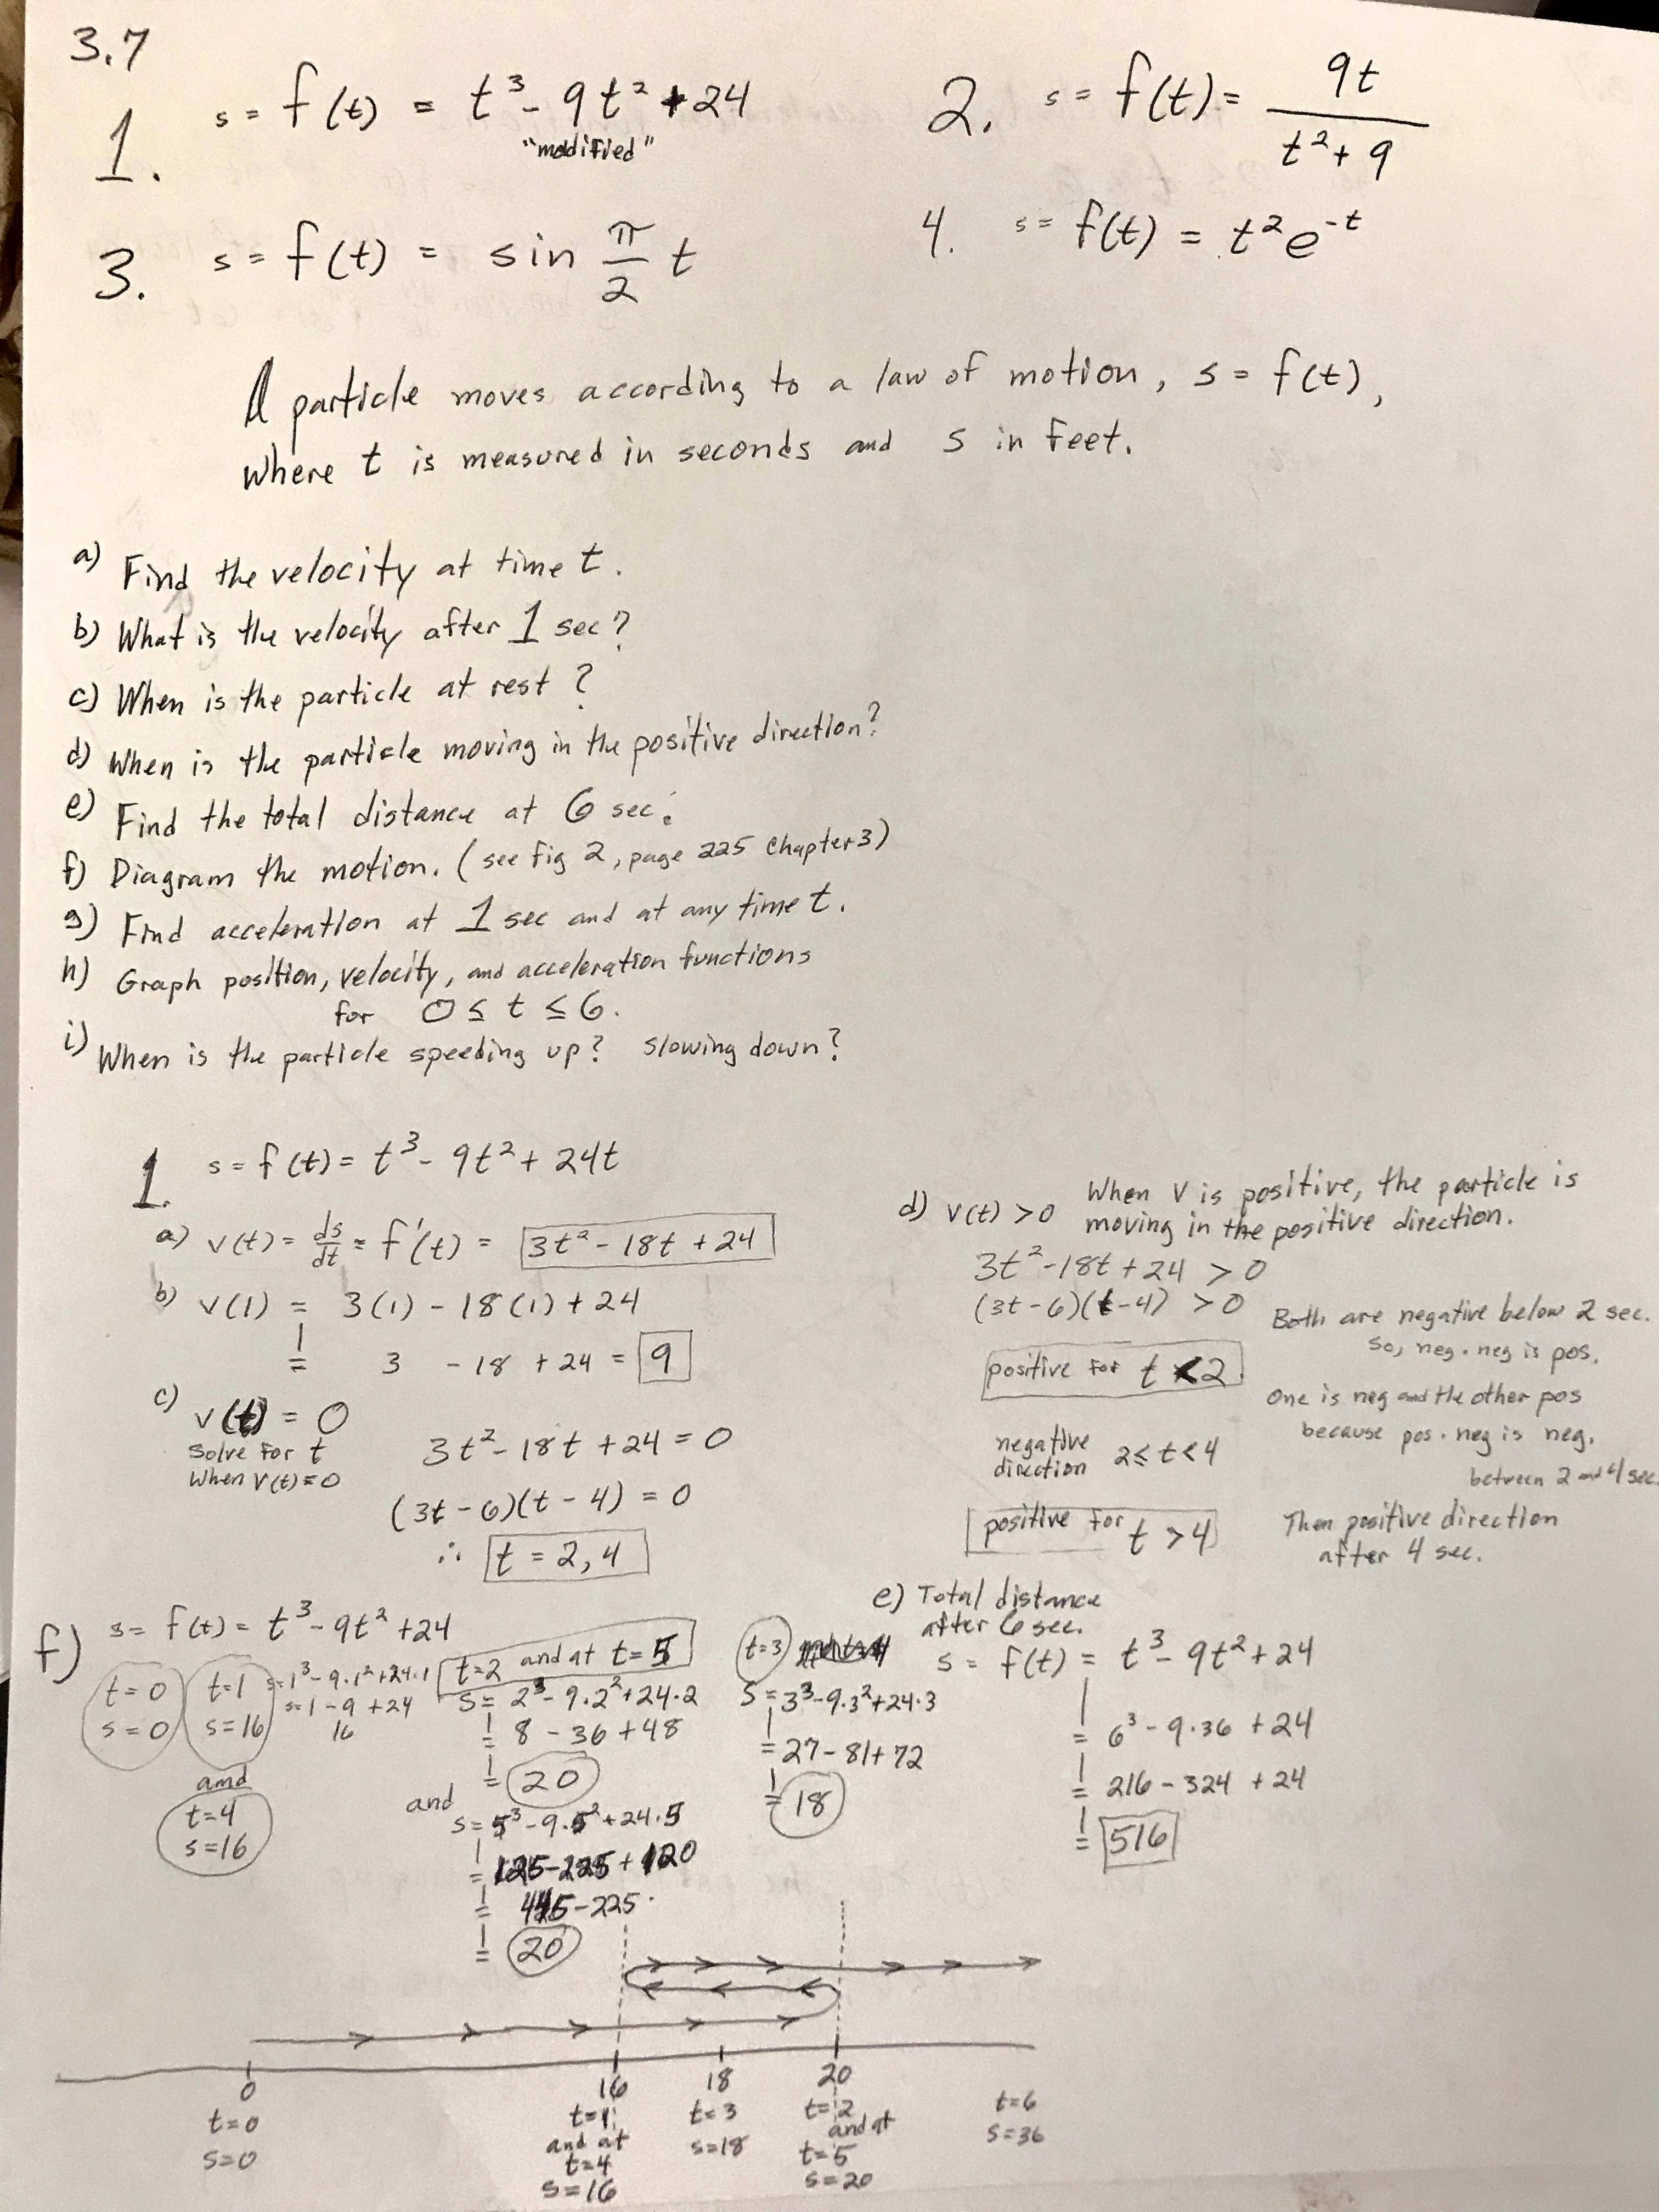 3.7
1. s = f(t) = t³ - 9t² + 24
"modified"
2. s = f(t) = 9t / t² + 9
3. s = f(t) = sin π/2 t
4. s = f(t) = t²e^-t
A particle moves according to a law of motion, s = f(t),
where t is measured in seconds and s in feet.
a) Find the velocity at time t.
b) What is the velocity after 1 sec?
c) When is the particle at rest?
d) When is the particle moving in the positive direction?
e) Find the total distance at 6 sec.
f) Diagram the motion. (see fig 2, page 225 Chapter 3)
g) Find acceleration at 1 sec and at any time t.
h) Graph position, velocity, and acceleration functions
for 0 ≤ t ≤ 6.
i) When is the particle speeding up? Slowing down?
1. s = f(t) = t³ - 9t² + 24t
a) v(t) = ds/dt = f'(t) = 3t² - 18t + 24
b) v(1) = 3(1) - 18(1) + 24
= 3 - 18 + 24 = 9
c) v(t) = 0
Solve for t
When v(t) = 0
3t² - 18t + 24 = 0
(3t - 6)(t - 4) = 0
∴ t = 2, 4
d) v(t) > 0 When V is positive, the particle is
moving in the positive direction.
3t² - 18t + 24 > 0
(3t - 6)(t - 4) > 0
Both are negative below 2 sec.
So, neg · neg is pos.
positive for t < 2.
One is neg and the other pos
because pos · neg is neg.
between 2 and 4 sec.
negative
direction 2 ≤ t < 4
positive for t > 4
Then positive direction
after 4 sec.
e) Total distance
after 6 sec.
s = f(t) = t³ - 9t² + 24
= 6³ - 9·36 + 24
= 216 - 324 + 24
= 516
f) s = f(t) = t³ - 9t² + 24
t = 0
s = 0
t = 1
s = 16
s = 1³ - 9·1² + 24·1
s = 1 - 9 + 24
16
and
t = 4
s = 16
t = 2 and at t = 5
s = 2³ - 9·2² + 24·2
= 8 - 36 + 48
= 20
and
s = 5³ - 9·5² + 24·5
= 125 - 225 + 120
= 445 - 225
= 20
t = 3
s = 3³ - 9·3² + 24·3
= 27 - 81 + 72
= 18
0 16 18 20
t = 0
s = 0
t = 1
and at
t = 4
s = 16
t = 3
s = 18
t = 2
and at
t = 5
s = 20
t = 6
s = 36